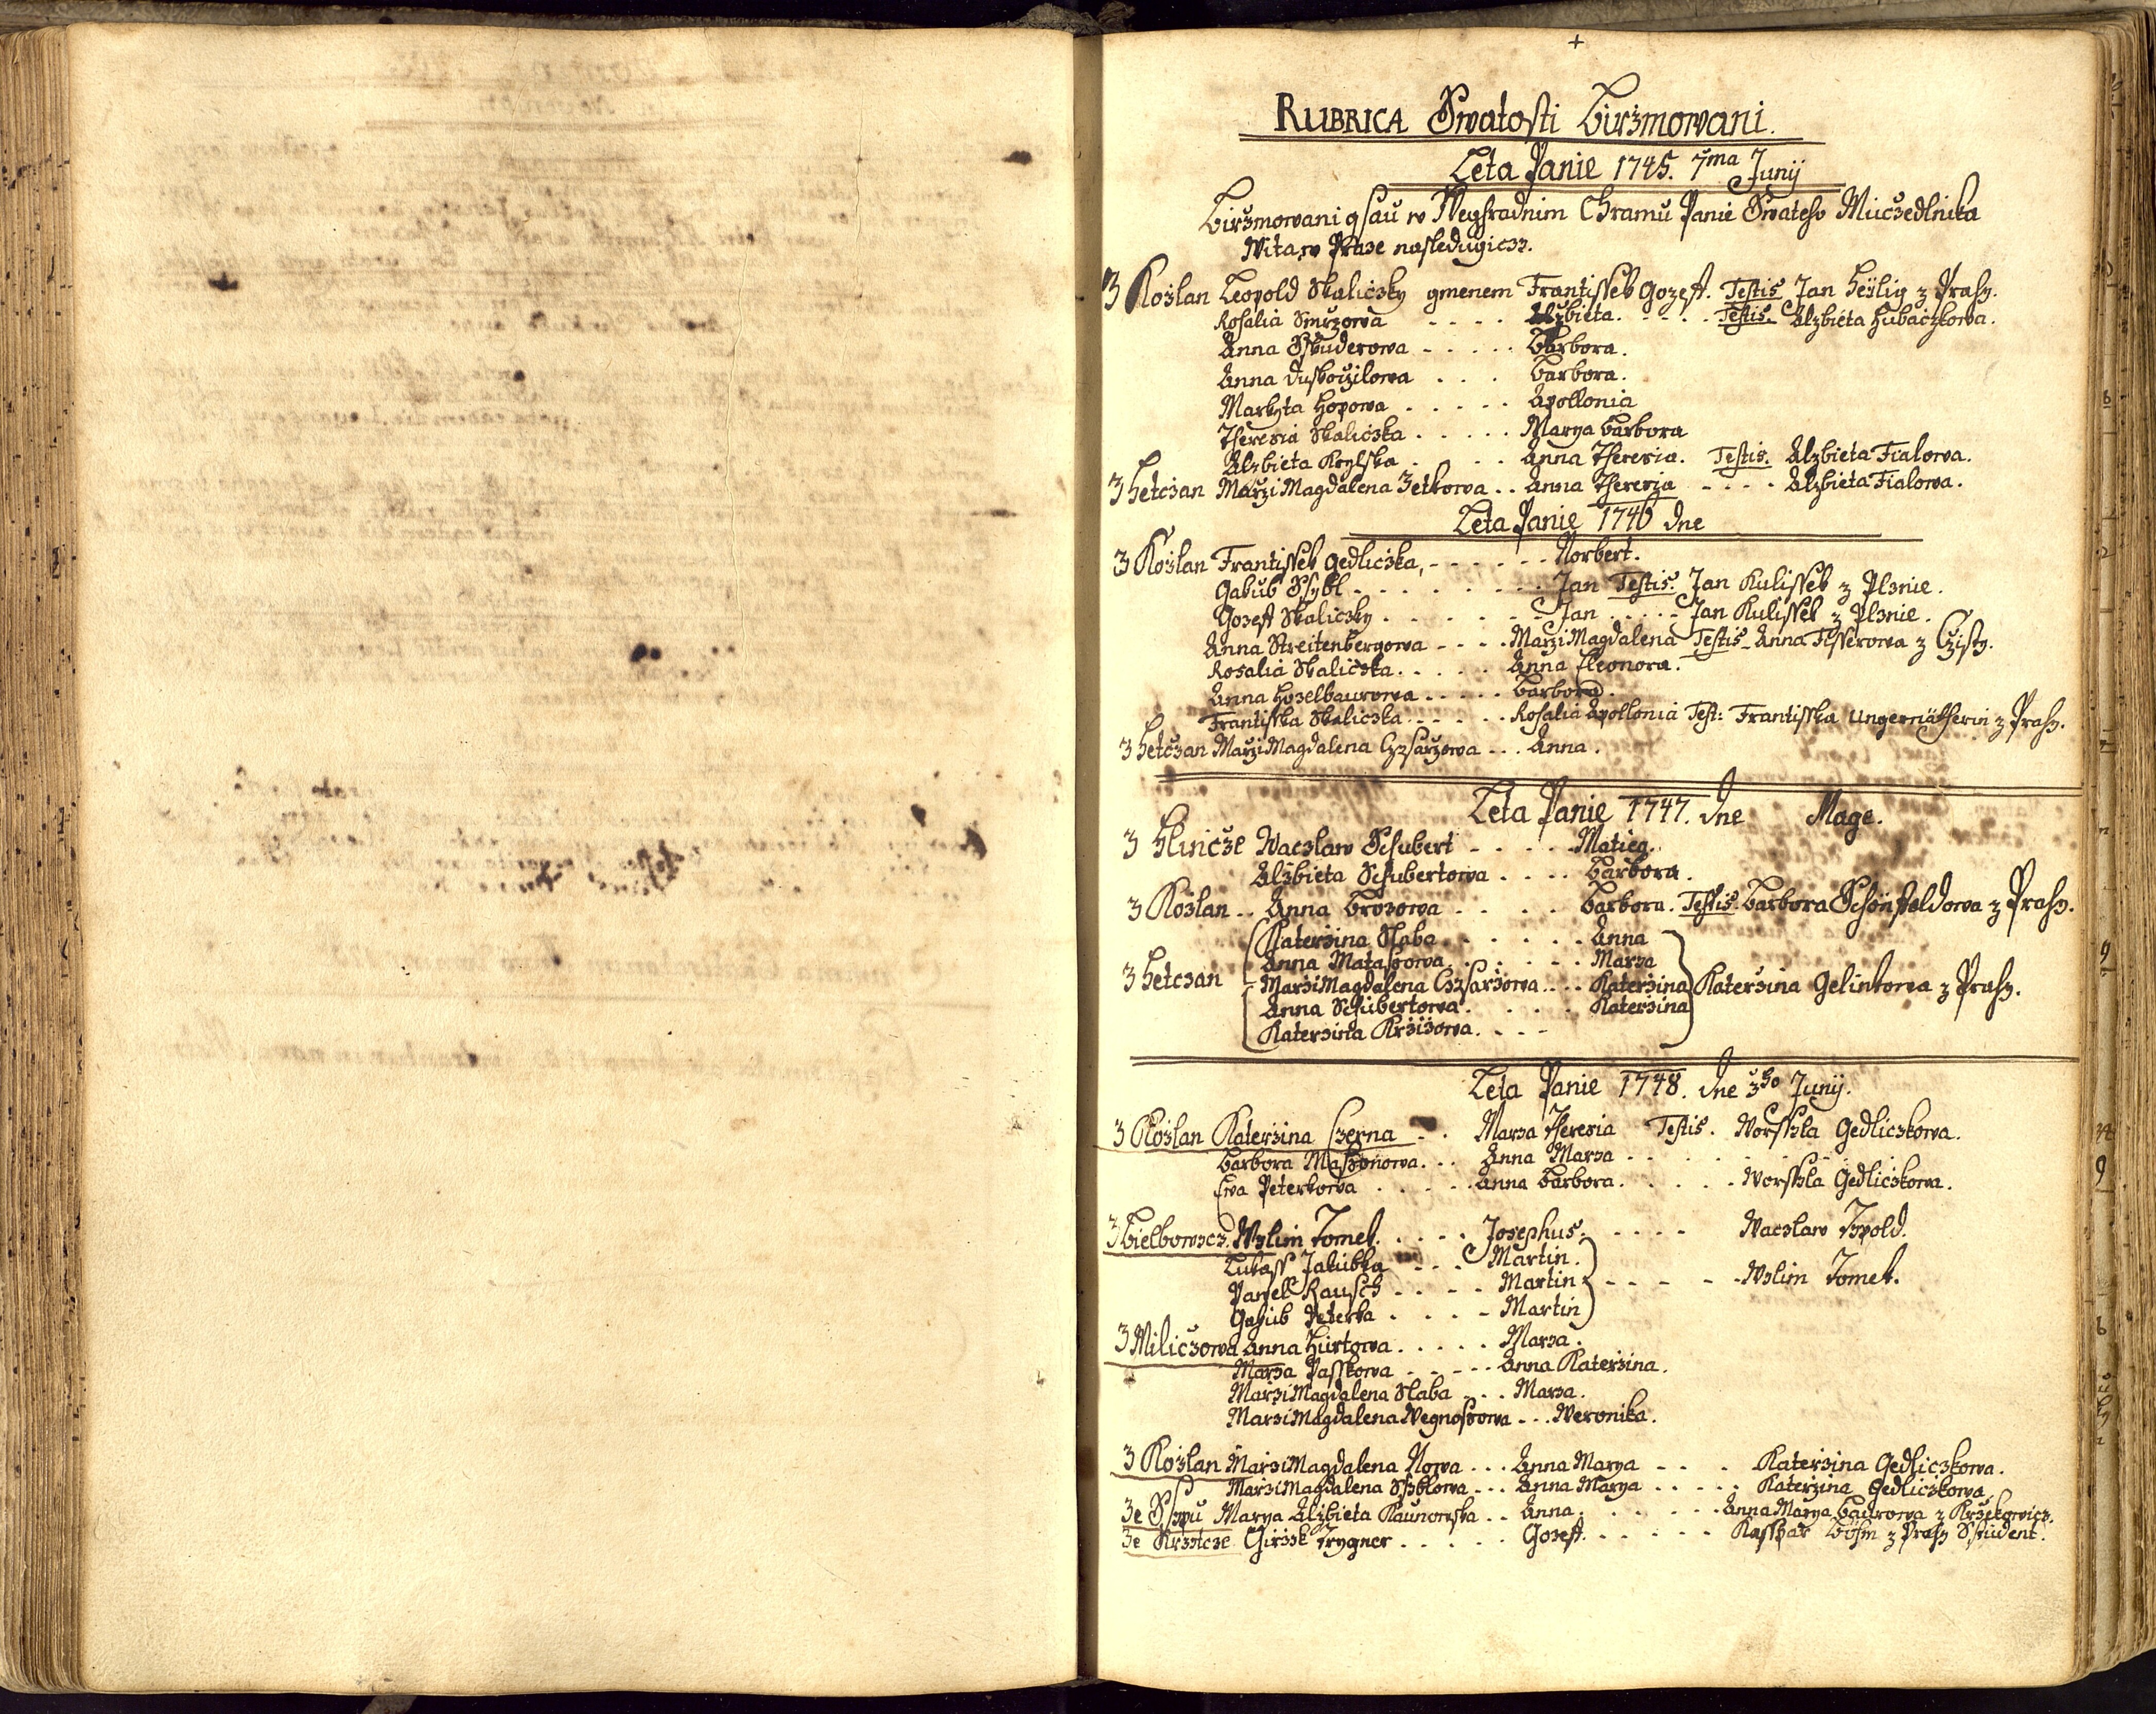 +
RUBRICA Swatosti Birzmowani.
Leta Panie 1745. 7ma Junij
Birzmowani gsau w Neyhradnim Chramu Panie Swateho Muczedlnika
Wita, w Praze nasledugiczy.
Z Kozlan Leopold Skaliczky gmenem Frantissek Gozeff. Testis Jan Heylig z Prahy.
Rosalia Smrzowa - - - - Alzbieta. - - - - Testis. Alzbieta Hubaczkowa.
Anna Sskuderowa - - - - - Barbora.
Anna Duskoczilowa . . . Barbora.
Markyta Hopowa . . . . . Apollonia
Theresia Skaliczka . . . . . Marya Barbora
Alzbieta Krylska . . . . Anna Theresia. Testis. Alzbieta Fialowa.
Z Hetczan Marzi Magdalena Zetkowa . . Anna Theresia - - - - Alzbieta Fialowa.
Leta Panie 1746 dne
Z Kozlan Frantissek Gedliczka, - - - - - - Norbert.
Gakub Ssybl - - . . . . . . . Jan Testis. Jan Kulissek z Plznie.
Gozeff Skaliczky . . . . - - - Jan . . . . - Jan Kulissek z Plznie.
Anna Streitenbergowa - - - - Marzi Magdalena Testis - Anna Fisserowa z Czisty.
Rosalia Skaliczka . . . . . Anna Eleonora.
Anna Hozelbaurowa . . . . . Barbora.
Frantisska Skaliczka . . - - - . Rosalia Apollonia Test: Frantisska Ungernätherin z Prahy.
Z Hetczan Marzi Magdalena Czysarzowa . . . Anna.
Leta Panie 1747. dne Mage.
Z Hlincze Waczlaw Schubert - . . . - Matieg.
Alzbieta Schubertowa . . . . Barbora.
Z Kozlan . . Anna Brozowa . . . . Barbora. Testis. Barbora Schönfeldowa z Prahy.
Katerzina Slaba . . . . . . Anna
Anna Matassowa . . . . . . Marza
Z Hetczan Marzi Magdalena Czysarzowa . . . . Katerzina Katerzina Gelinkowa z Prahy.
Anna Schubertowa . . . . . Katerzina
Katerzina Krzizowa . . . -
Leta Panie 1748. dne 3ho Junij.
Z Kozlan Katerzina Czerna - . . Marza Theresia Testis. Worssyla Gedliczkowa.
Barbora Masskonowa . . . Anna Marza - - . . . - - -
Ewa Peterkowa . . . . . Anna Barbora . . . . . - Worssyla Gedliczkowa.
Z Bielbowzcz. Wylim Tomek . . . . . Josephus. - - - - Waczlaw Typold.
Lukass Jakubka - - - . Martin.
Pawel Rausch . . - - - Martin - - - - - Wylim Tomek.
Gakub Peterka . . . - Martin
Z Miliczowa Anna Hurtowa . . . . . Marza.
Marza Passkowa . . - - - Anna Katerzina.
Marzi Magdalena Slaba . . . Marza.
Marzi Magdalena Wegnoskowa . . . Weronika.
Z Kozlan Marzi Magdalena Nowa . . . Anna Marya - - . Katerzina Gedliczkowa.
Marzi Magdalena Ssyblowa . . . Anna Marya . . . . . Katerzina Gedliczkowa
Ze Ssypu Marya Alzbieta Kaunowska . . Anna . . . . . . Anna Marya Baurowa z Krzekowicz.
Ze Krzetcze Girzik Trygner . . . . . Gozeff . . . . . . Kasspar Böhm z Prahy Student.